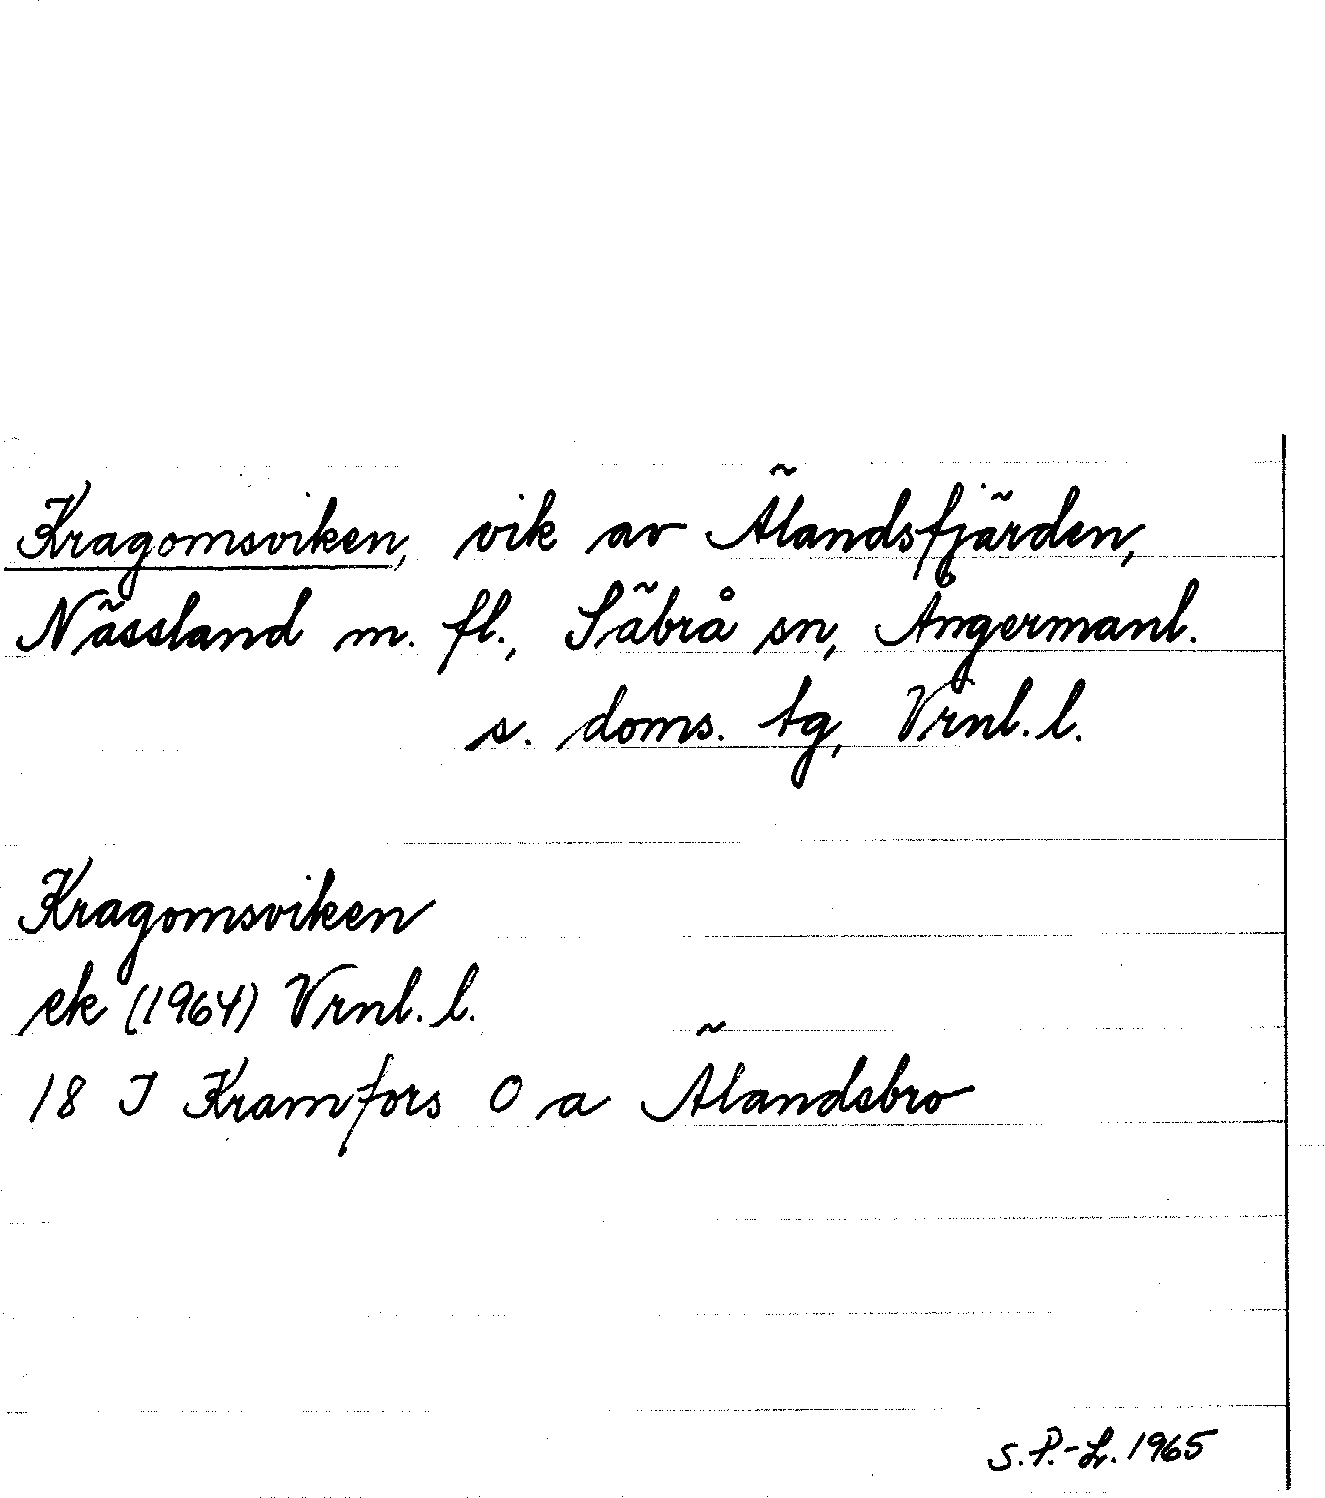 Kragomsviken, vik av Älandsfjärden,
Nässland m. fl., Säbrå sn, Ångermanl.
s. doms. tg, Vrnl. l.
Kragomsviken
ek (1964) Vrnl. l.
18 I Kramfors O a Älandsbro
S. P.-L. 1965